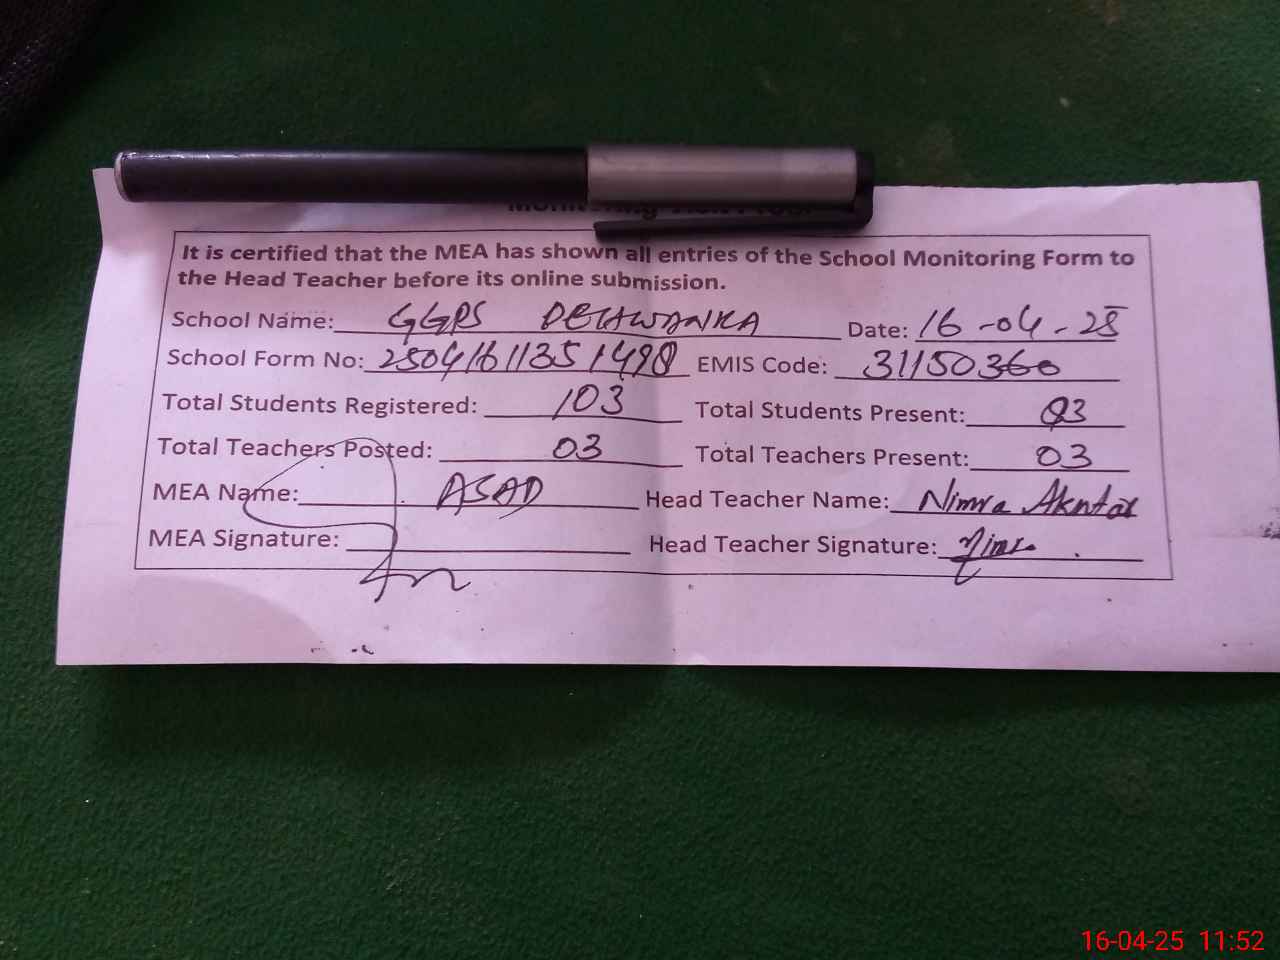 It is certified that the MEA has shown all entries of the School Monitoring Form to
the Head Teacher before its online submission.
School Name: GGPS DELAWANKA Date: 16-04-25
School Form No: 25041611351498 EMIS Code: 31150360
Total Students Registered: 103 Total Students Present: 93
Total Teachers Posted: 03 Total Teachers Present: 03
MEA Name: ASAD Head Teacher Name: Nimra Akhtar
MEA Signature: Head Teacher Signature: Nimra
16-04-25 11:52